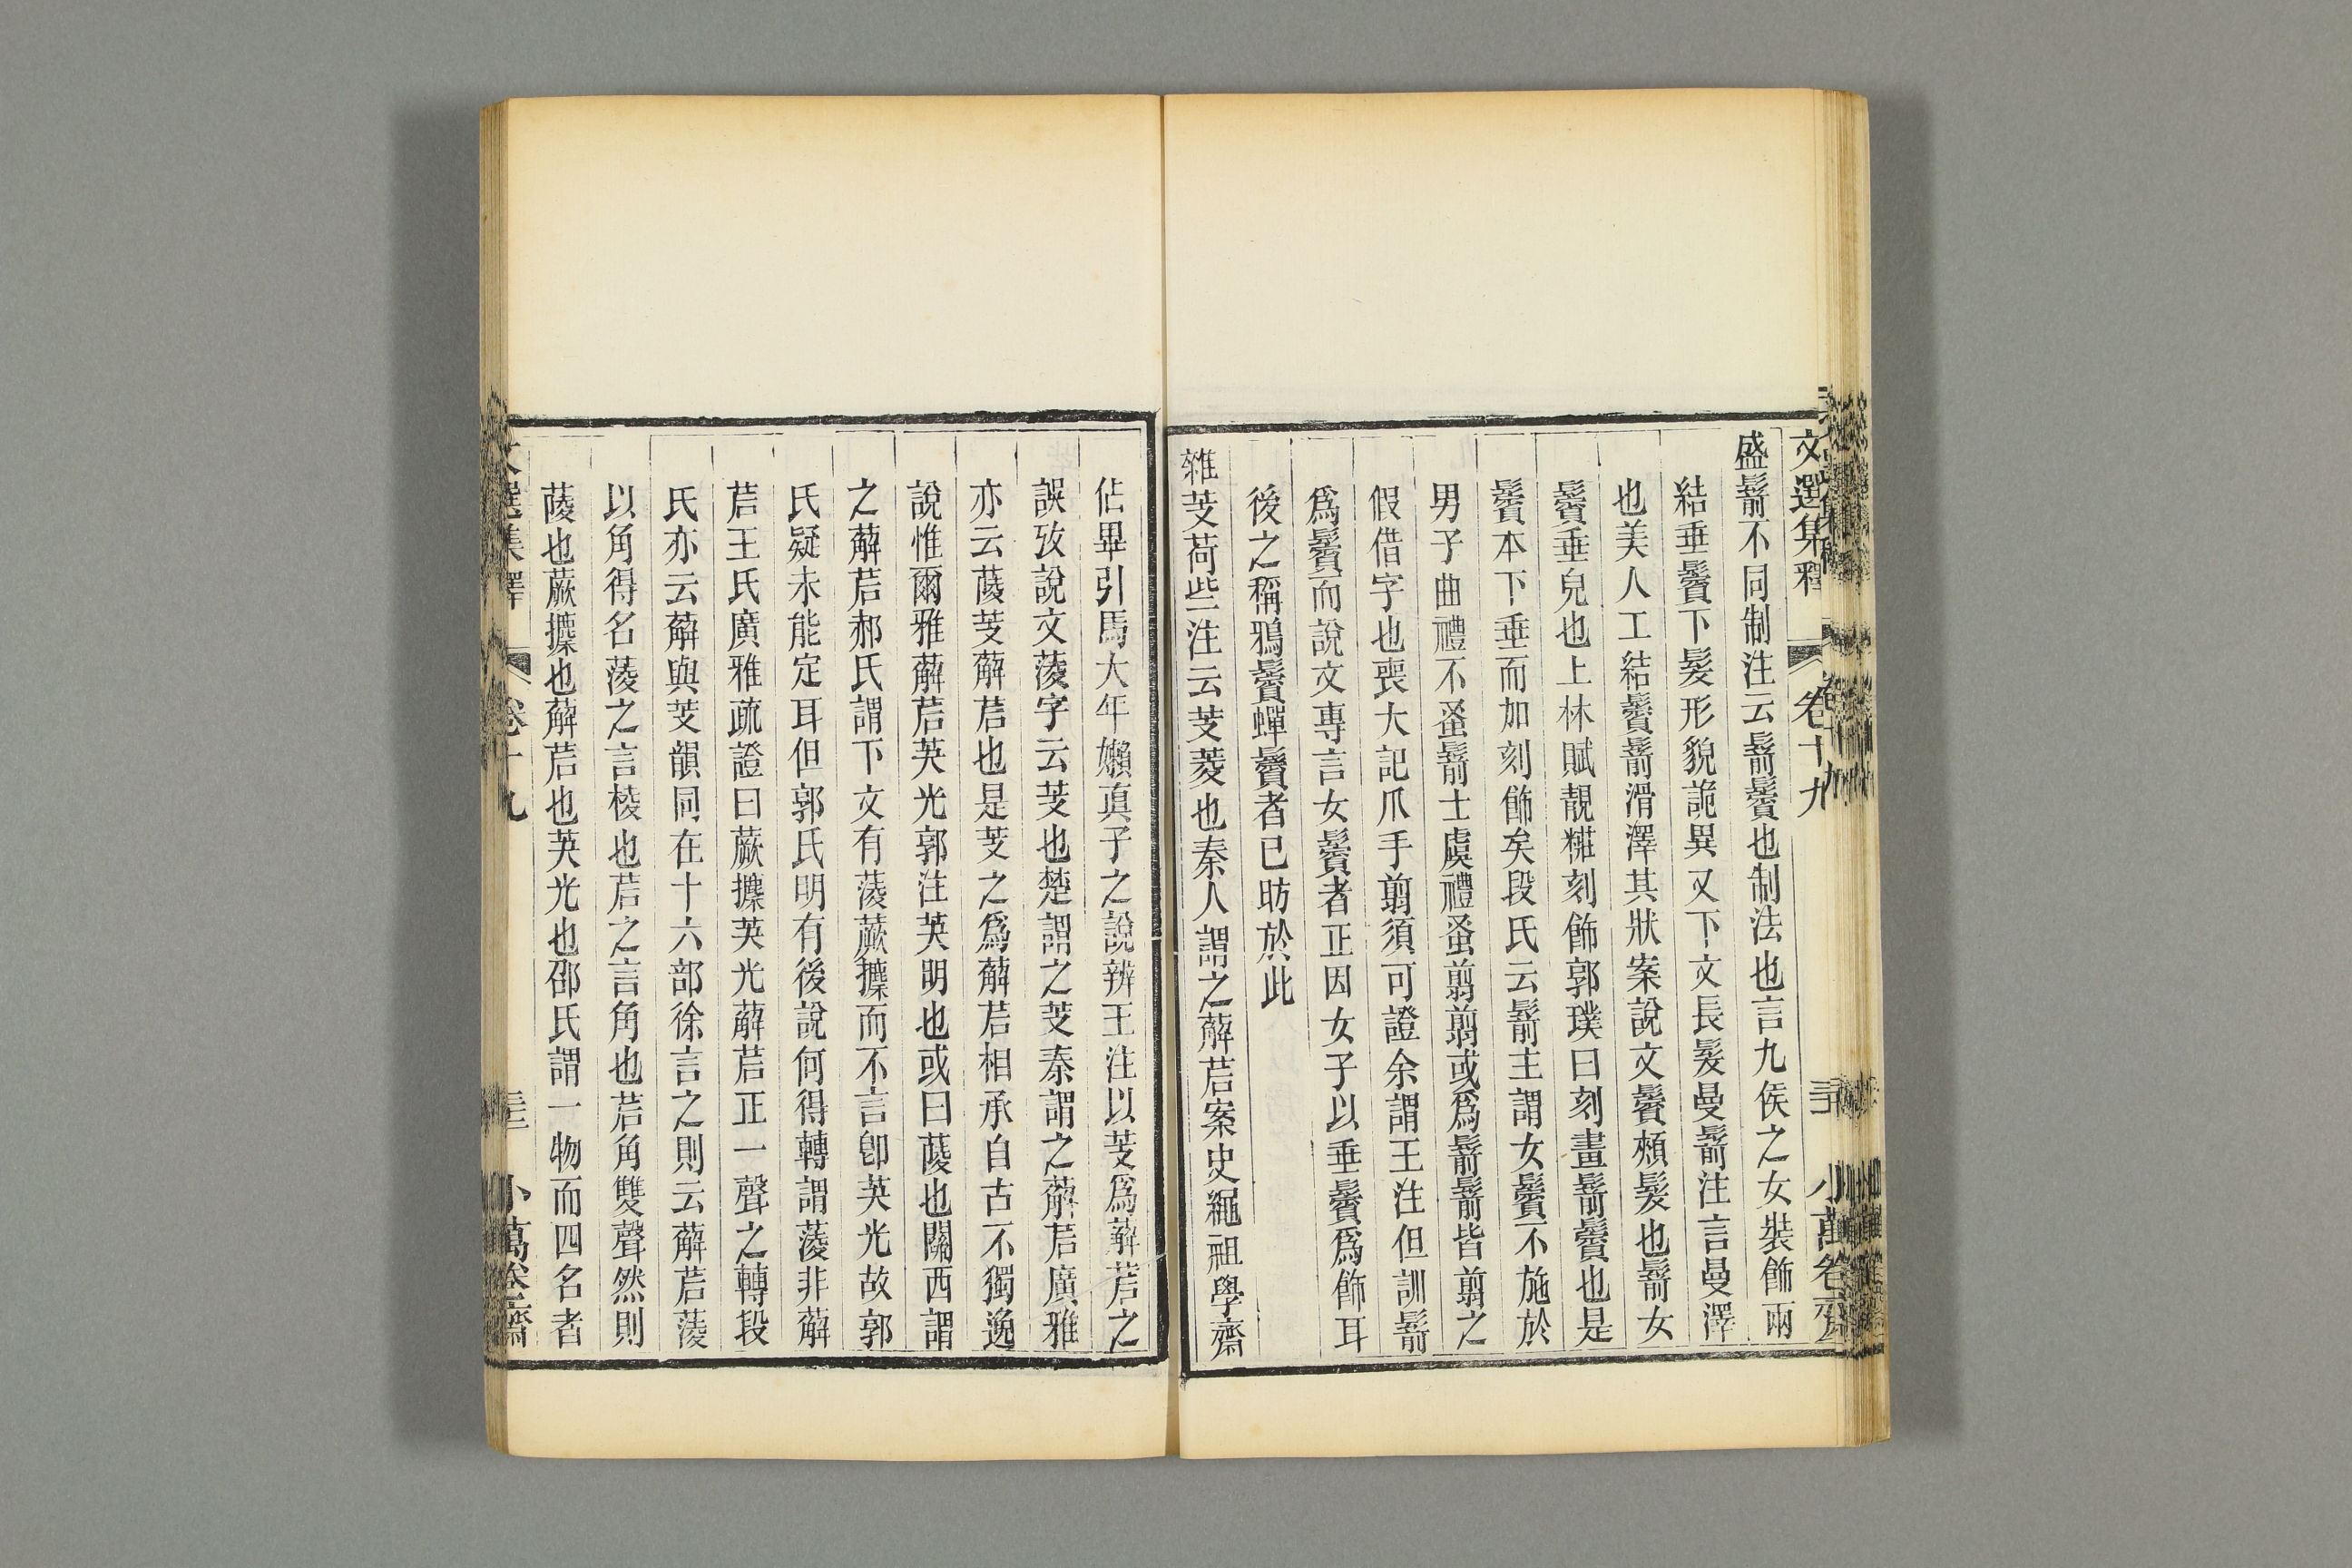 文選集釋 卷十九 三十 小萬卷齋
盛鬋不同制注云鬋鬢也制法也言九侯之女裝飾兩
結垂鬢下髮形貌詭異又下文長髮曼鬋注言曼澤
也美人工結鬢鬋滑澤其狀案說文鬢頰髮也鬋女
鬢垂皃也上林賦靚糚刻飾郭璞曰刻畫鬋鬢也是
鬢本下垂而加刻飾矣段氏云鬋主謂女鬢不施於
男子曲禮不蚤鬋士虞禮蚤翦翦或爲鬋鬋皆翦之
假借字也喪大記爪手翦須可證余謂王注但訓鬋
爲鬢而說文專言女鬢者正因女子以垂鬢爲飾耳
後之稱鴉鬢蟬鬢者已昉於此
雜芰荷些注云芰菱也秦人謂之薢茩案史繩祖學齋
佔畢引馬大年嬾真子之說辨王注以芰爲薢茩之
誤攷說文蔆字云芰也楚謂之芰秦謂之薢茩廣雅
亦云蔆芰薢茩也是芰之爲薢茩相承自古不獨逸
說惟爾雅薢茩芵光郭注芵明也或曰蔆也關西謂
之薢茩郝氏謂下文有蔆蕨攗而不言卽芵光故郭
氏疑未能定耳但郭氏明有後說何得轉謂蔆非薢
茩王氏廣雅疏證曰蕨攗芵光薢茩正一聲之轉段
氏亦云薢與芰韻同在十六部徐言之則云薢茩蔆
以角得名蔆之言棱也茩之言角也茩角雙聲然則
蔆也蕨攗也薢茩也芵光也邵氏謂一物而四名者
文選集釋 卷十九 小萬卷齋